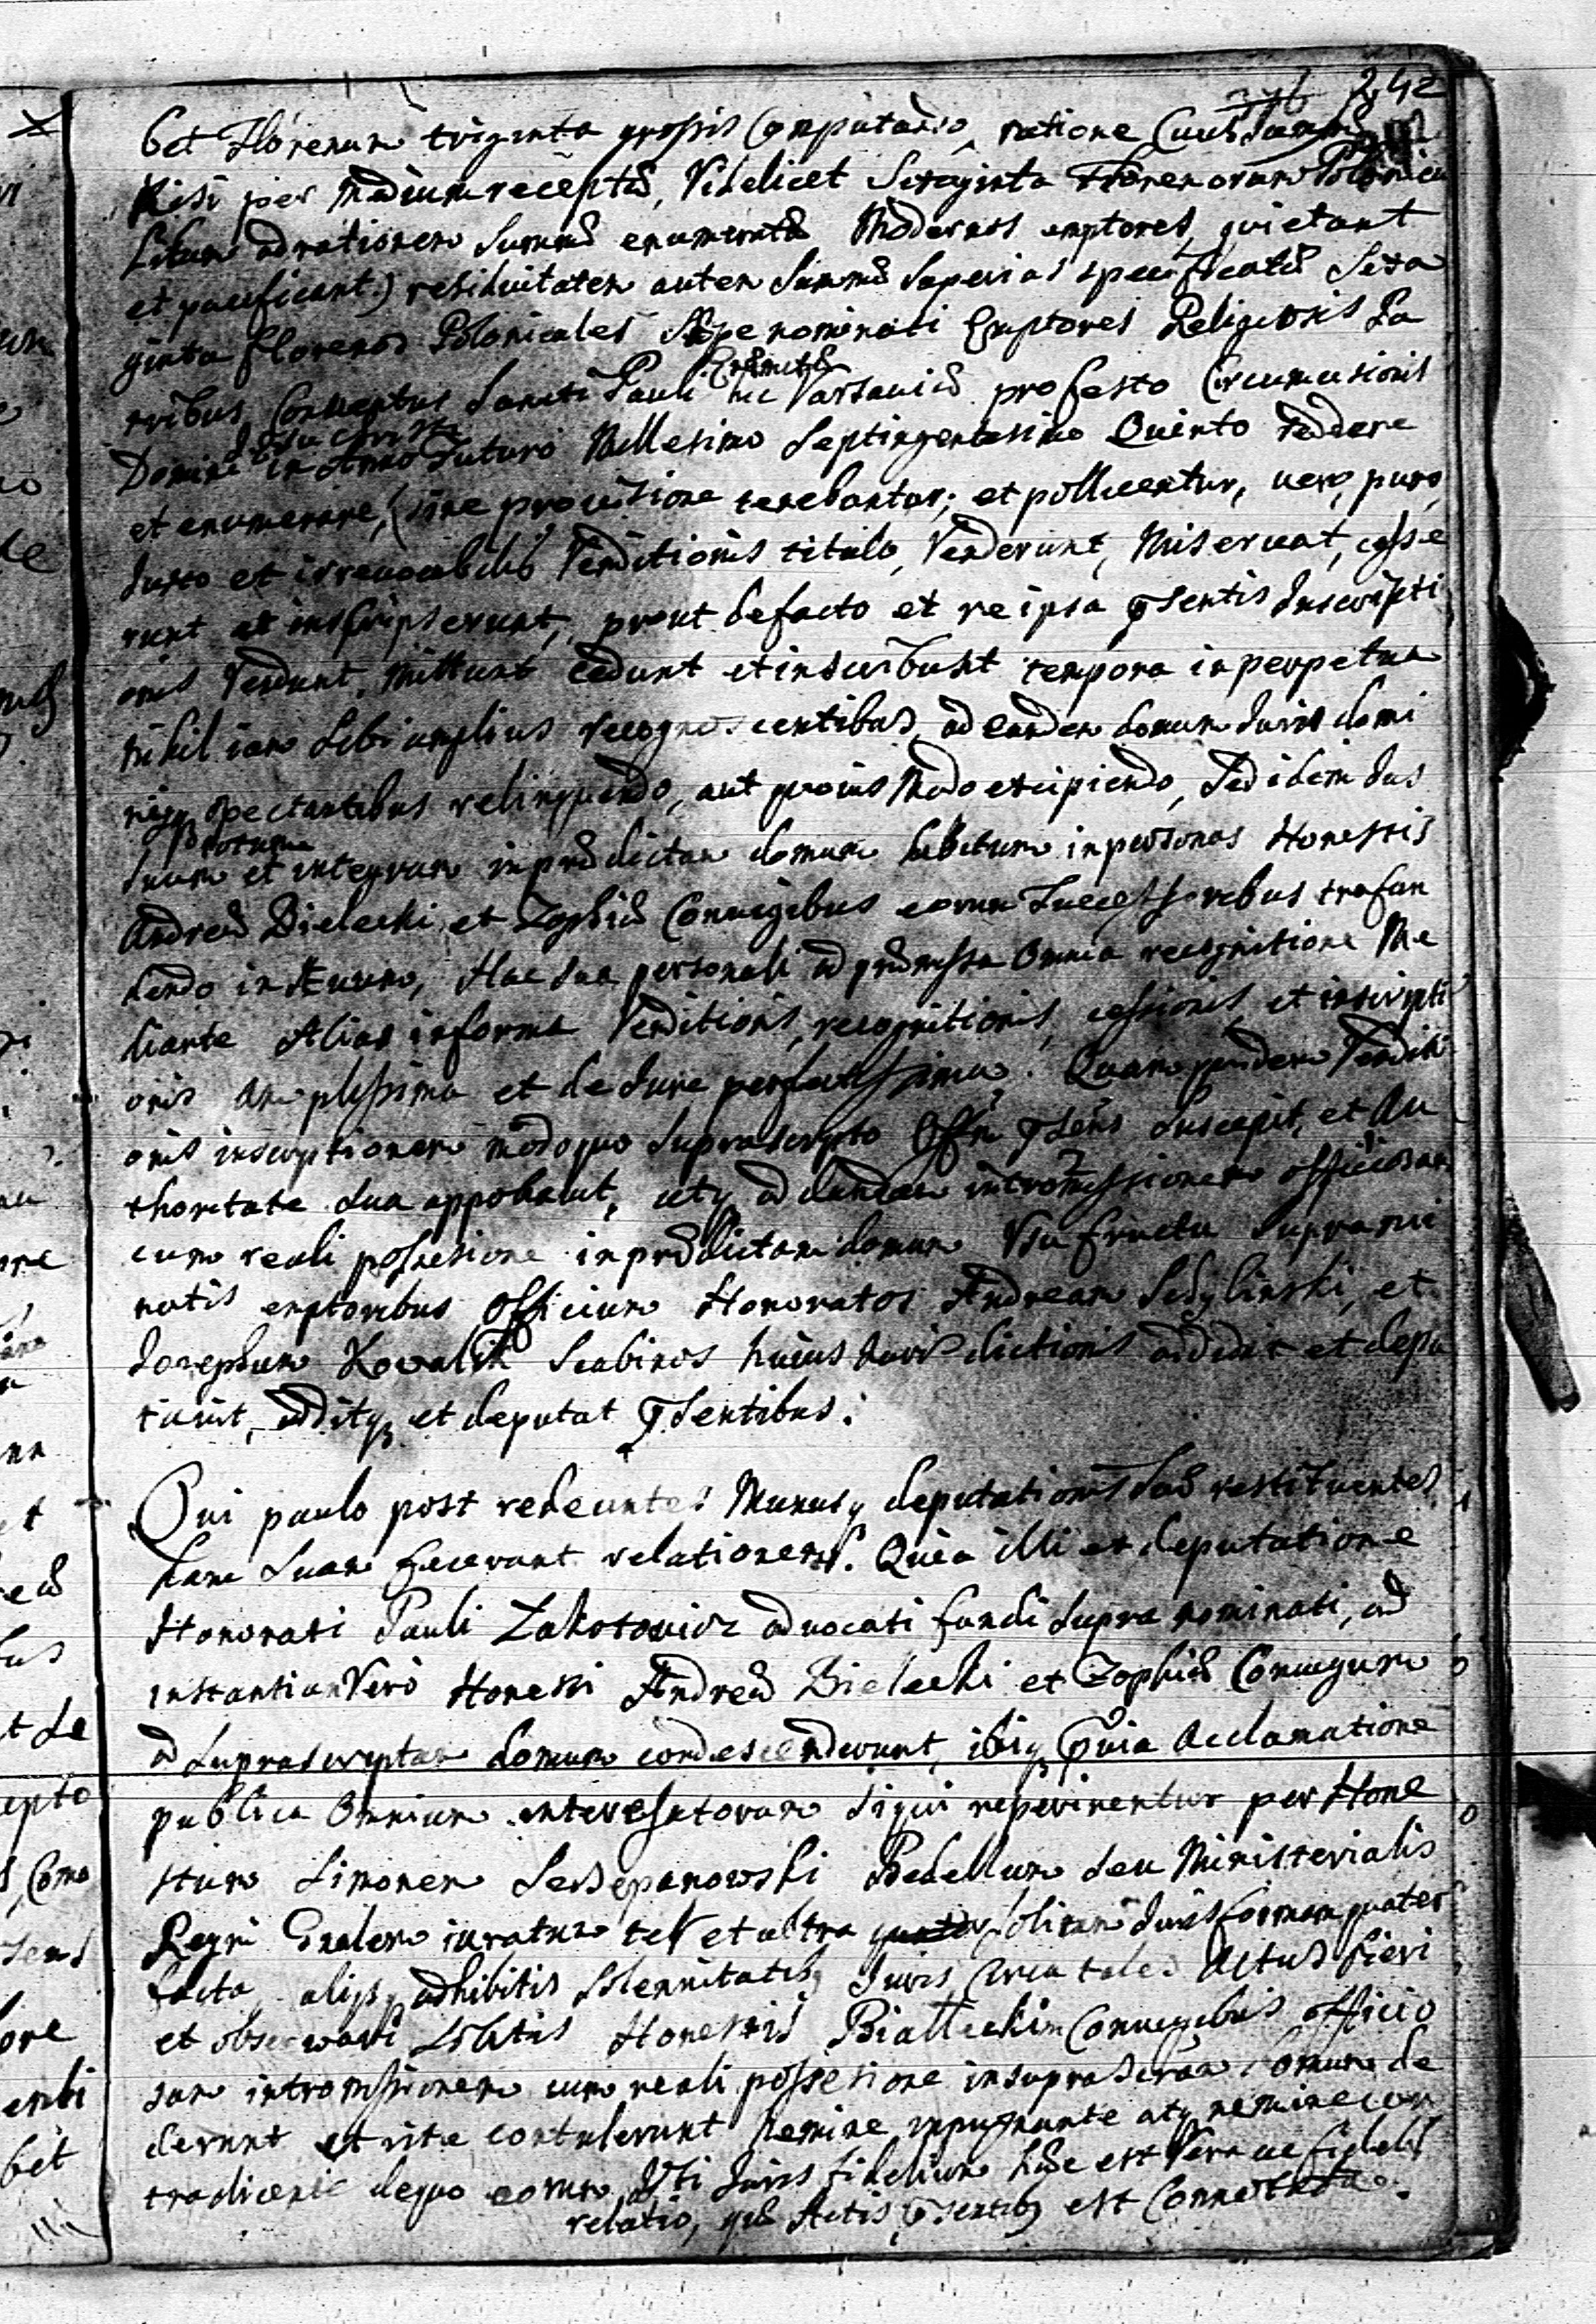 242
bet Florenum triginta grossis Computando, ratione Cuius Summæ
Nisi per Medium receptæ, Videlicet Sexaginta Florenorum Polonica
lium ad rationem Summæ enumeratæ Modernos emptores quietant
et pacificant) residuitatem autem Summæ Superius specificatæ Sexa
ginta florenos Polonicales Sæpe nominati Emptores Religiosis Pa
tribus Conventus Sancti Pauli Eremitæ hic Varsaviæ profesto Circumcisionis
Domini Jesu Christi in Anno Futuro Millesimo Septingentesimo Quinto reddere
et enumerare, sine provisione tenebantur, et pollicentur, vero, puro,
Justo et irrevocabili Venditionis titulo, Venderunt, Miserunt, cesse
runt et inscripserunt, prout de facto et re ipsa præsentis Inscripti
onis Vendunt, Mittunt Cedunt et inscribunt tempora in perpetua
nihil iam Sibi amplius recognoscentibus, ad eandem domum Juris domi
niiq spectantibus relinquendo, aut quovis Modo excipiendo, Sed idem Jus
Suum totum et integrum in prædictam domum habitum in personas Honestis
Andreæ Bielecki et Zophiæ Coniugibus eorum Successoribus trasfun
dendo in ævum, Hac Sua personali ad præmissa Omnia recognitione Me
diante Alias in forma Venditionis, recognitionis, cessionis, et inscripti
onis Amplissima et de Jure perfectissima. Quam quidem Venditi
onis inscriptionem modo quo Suprascripto Offm præsens Suscepit, et Au
thoritate Sua approbavit, utq ad dandam intromissionem officiosam
cum reali possesione in prædictam domum Usufructu Supranomi
natis emptoribus Officium Honoratos Andream Sedylinski, et
Josephum Kowalik Scabinos huius Juris dictionis addidit et depu
tavit, additq et deputat præsentibus.
Qui paulo post redeuntes Munusq deputationis Suæ restituentes
hanc Suam fecerunt relationem. Quia illi ex deputatione
Honorati Pauli Zakotowicz advocati fundi Supra nominati, ad
instantiam Vero Honesti Andreæ Bielecki et Zophiæ Coniugum
ad Suprascriptam domum condescenderunt, ibiq prævia Acclamatione
publica Omnium interesatorum Siqui reperirentur per Hone
stum Simonem Sczepanowski Bedellum seu Ministerialis
Regni Gnalem iuratum ter et ultra solitam Juris formam quater
facta, alijsq adhibitis Solennitatibq Juris Circa tales Actus fieri
et observari Solitis Honestis Bialleckim Coniugibus officio
sam intromissionem cum reali possesione in suprascrãm domum de
derunt et rite contulerunt nemine repugnante atq nemine con
tradicente de quo eorum Uti Juris fidelium hæc est Vera ac fidelis
relatio, quæ Actis præsentibq est Connotata.